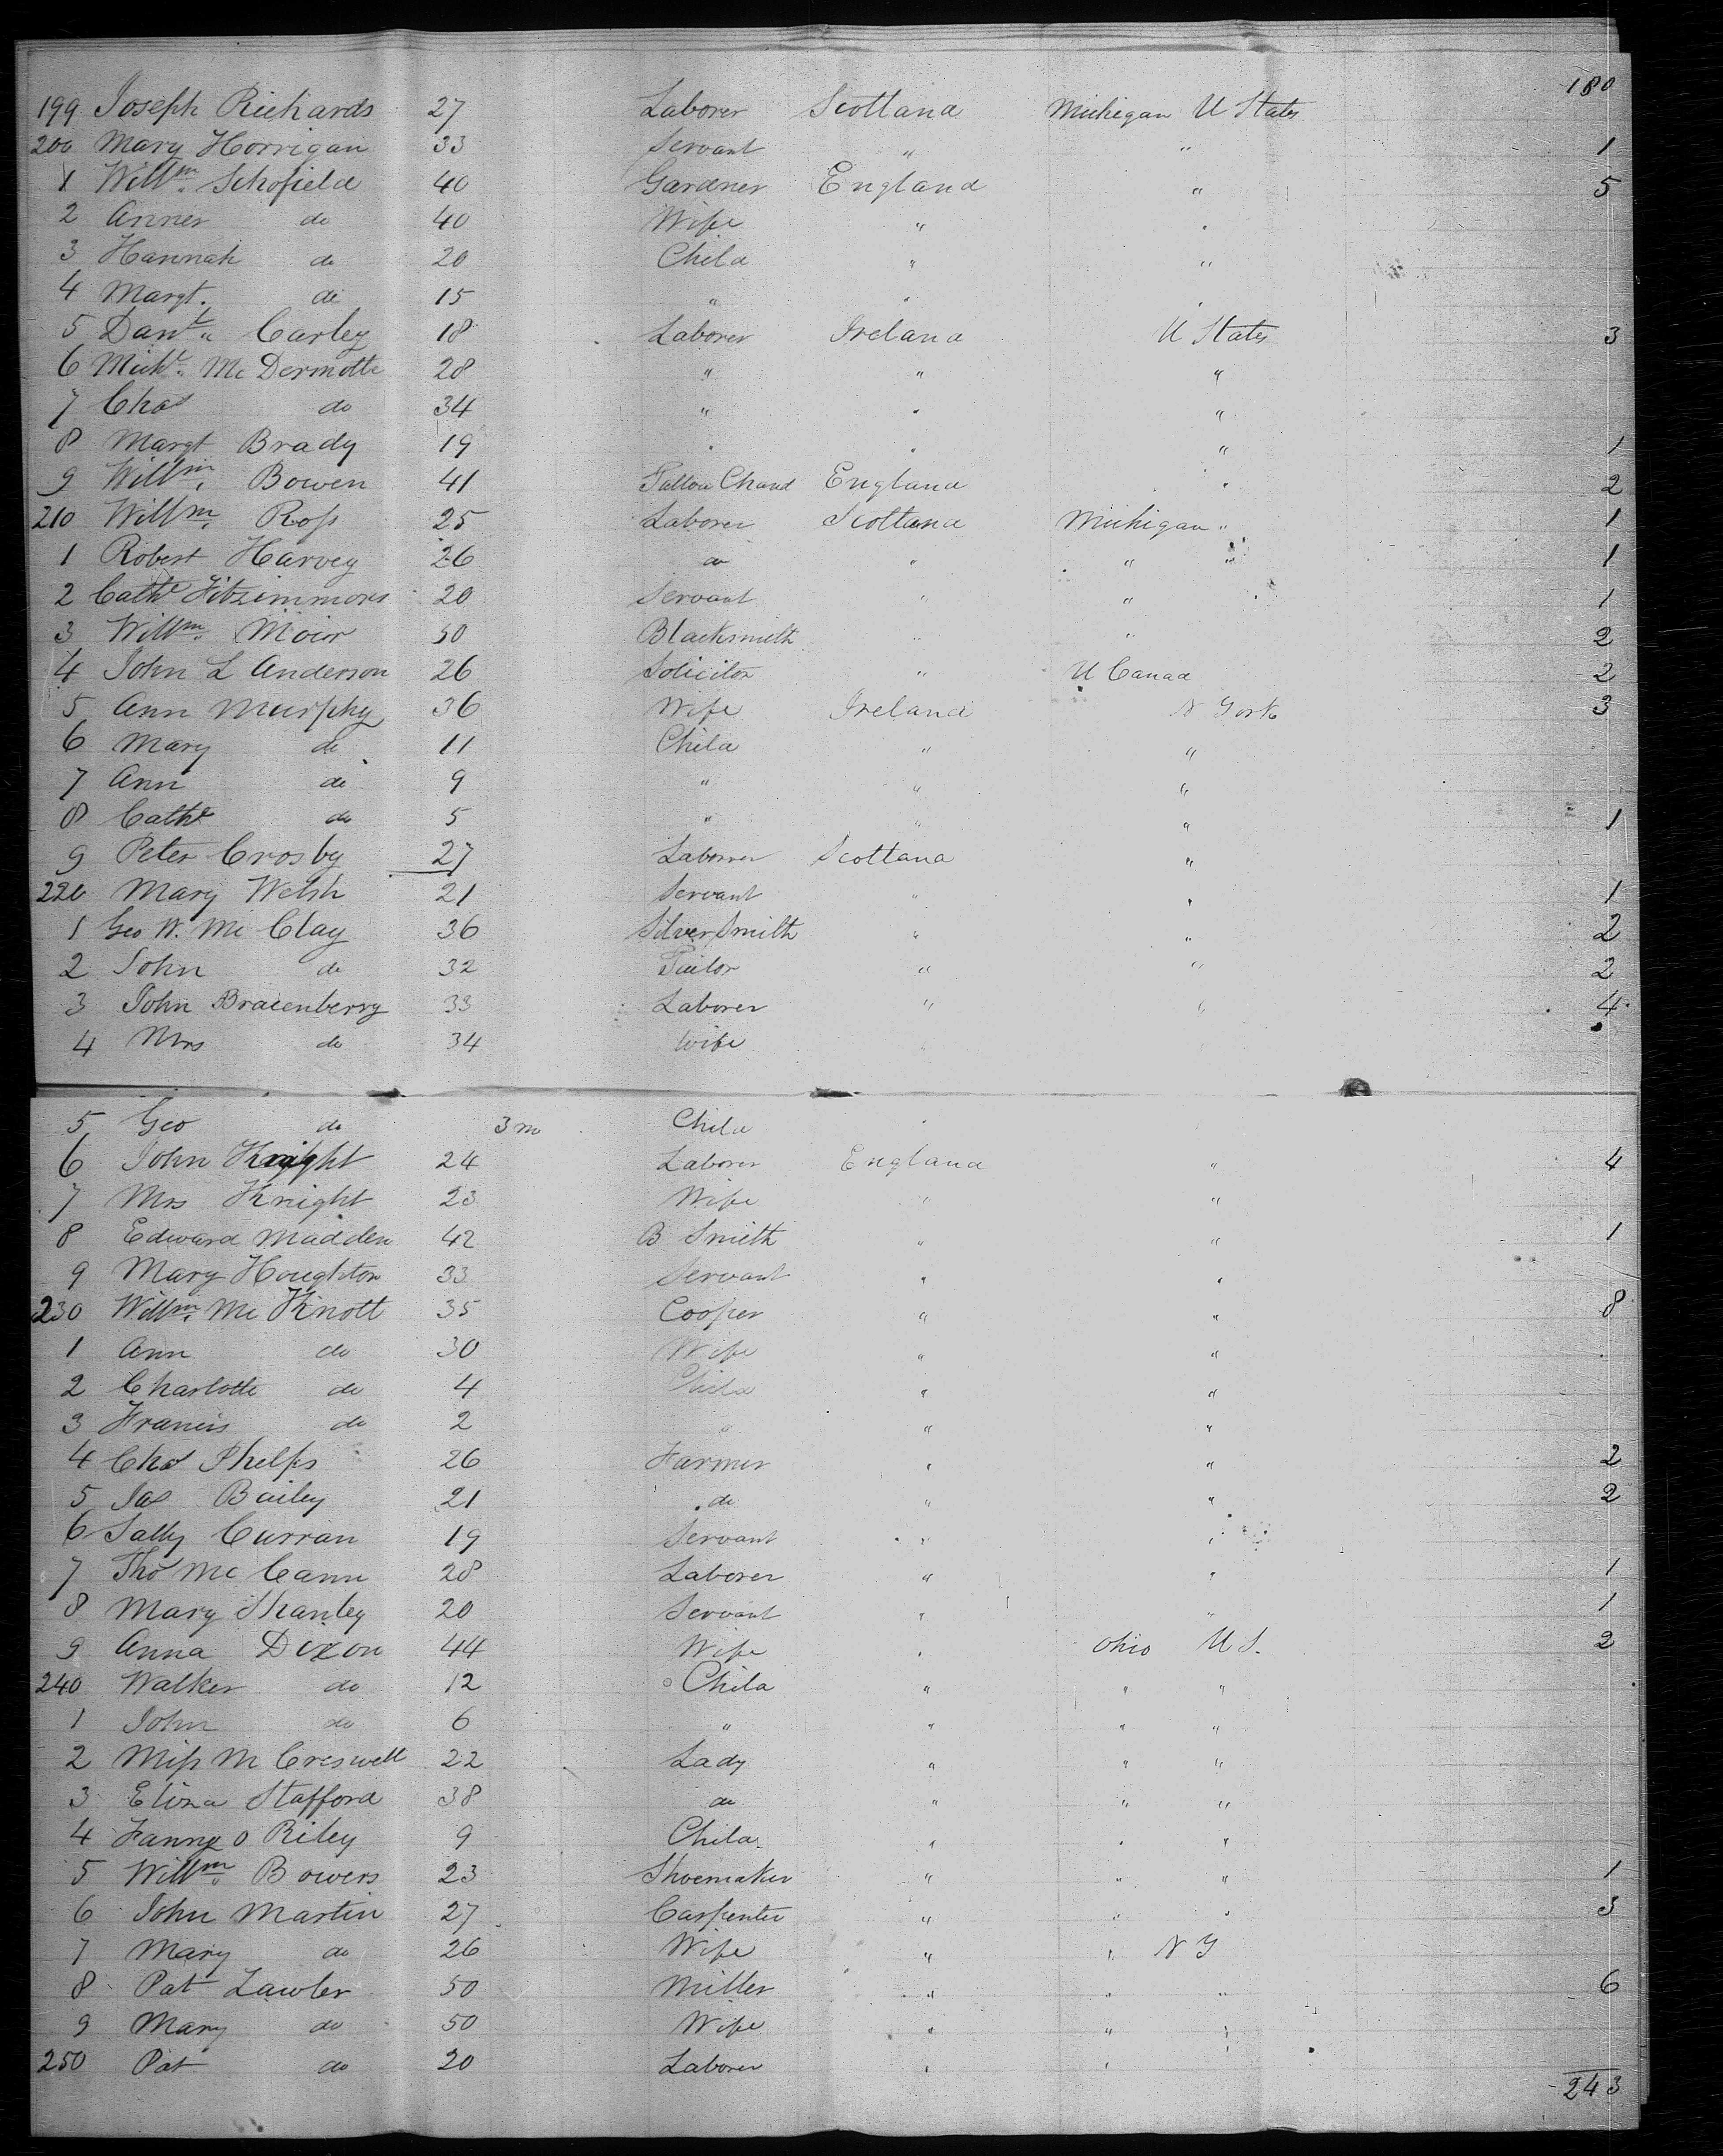 180
199 Joseph Richards 27 Laborer Scotland Michigan U States
200 Mary Horrigan 33 Servant " " 1
1 Willm. Schofield 40 Gardner England " 5
2 Anner do 40 Wife " "
3 Hannah do 20 Child " "
4 Margt. do 15 " " "
5 Danl. Carley 18 Laborer Ireland U States 3
6 Michl. Mc Dermotte 28 " " "
7 Chas do 34 " " "
8 Margt Brady 19 " " " 1
9 Willm. Bowen 41 Tallow Chand England " 2
210 Willm. Ross 25 Laborer Scotland Michigan " 1
1 Robert Harvey 26 do " " " 1
2 Cathe Fitzimmons 20 Servant " " " 1
3 Willm. Moir 30 Blacksmith " " 2
4 John L Anderson 26 Solicitor " U Canad 2
5 Ann Murphy 36 Wife Ireland N York 3
6 Mary do 11 Child " "
7 Ann do 9 " " "
8 Cathe do 5 " " " 1
9 Peter Crosby 27 Laborer Scotland "
220 Mary Welsh 21 Servant " " 1
1 Geo W. Mc Clay 36 Silver Smith " " 2
2 John do 32 Tailor " " 2
3 John Bracenberry 33 Laborer " " 4
4 Mrs do 34 Wife "
5 Geo do 3 m Child "
6 John Knight 24 Laborer England " 4
7 Mrs Knight 23 Wife " "
8 Edward Madden 42 B Smith " " 1
9 Mary Houghton 33 Servant " "
230 Willm. Mc Knott 35 Cooper " " 8
1 Ann do 30 Wife " "
2 Charlotte do 4 Child " "
3 Francis do 2 " " "
4 Chas Phelps 26 Farmer " " 2
5 Jas Bailey 21 do " " 2
6 Sally Curran 19 Servant " "
7 Thos Mc Cann 28 Laborer " " 1
8 Mary Shanley 20 Servant " " 1
9 Anna Dixon 44 Wife " Ohio U S. 2
240 Walker do 12 Child " " "
1 John do 6 " " " "
2 Miss M Creswell 22 Lady " " "
3 Eliza Stafford 38 do " " "
4 Fanny O Riley 9 Child " " "
5 Willm. Bowers 23 Shoemaker " " " 1
6 John Martin 27 Carpenter " " " 3
7 Mary do 26 Wife " " N Y
8 Pat Lawler 50 Miller " " " 6
9 Mary do 50 Wife " " "
250 Pat do 20 Laborer " " "
243